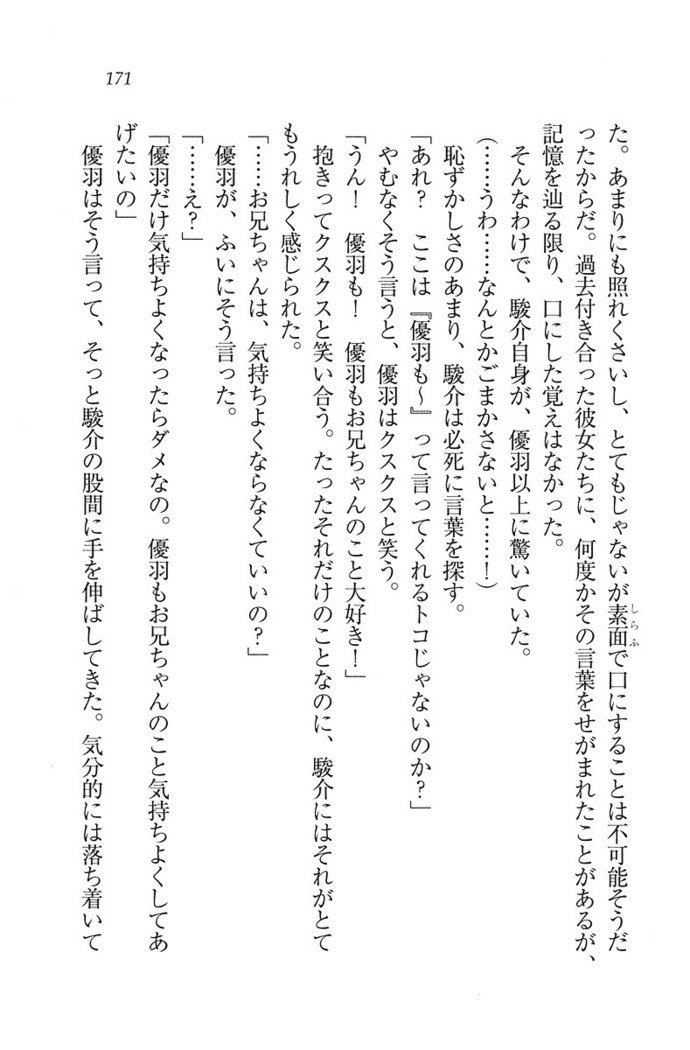 171
た。あまりにも照れくさいし、とてもじゃないが素面で口にすることは不可能そうだ
しらふ
ったからだ。過去付き合った彼女たちに、何度かその言葉をせがまれたことがあるが、
記憶を辿る限り、口にした覚えはなかった。
そんなわけで、駿介自身が、優羽以上に驚いていた。
(……うわ……なんとかごまかさないと……!)
恥ずかしさのあまり、駿介は必死に言葉を探す。
「あれ? ここは『優羽も〜』って言ってくれるトコじゃないのか?」
やむなくそう言うと、優羽はクスクスと笑う。
「うん! 優羽も! 優羽もお兄ちゃんのこと大好き!」
抱きってクスクスと笑い合う。たったそれだけのことなのに、駿介にはそれがとて
もうれしく感じられた。
「……お兄ちゃんは、気持ちよくならなくていいの?」
優羽が、ふいにそう言った。
「……え?」
「優羽だけ気持ちよくなったらダメなの。優羽もお兄ちゃんのこと気持ちよくしてあ
げたいの」
優羽はそう言って、そっと駿介の股間に手を伸ばしてきた。気分的には落ち着いて